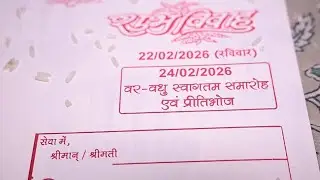 शुभ विवाह
22/02/2026 (रविवार)
24/02/2026
वर-वधु स्वागतम समारोह
एवं प्रीतिभोज
सेवा में,
श्रीमान् / श्रीमती